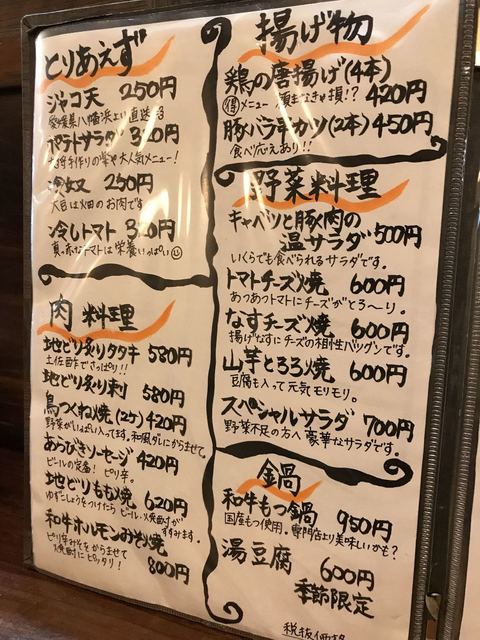 とりあえず
ジャコ天 250円
愛媛県八幡浜より直送
ポテトサラダ 320円
手作りの 大人気メニュー!
冷奴 250円
大豆は畑のお肉です
冷しトマト 320円
真っ赤なトマトは栄養いっぱい
肉料理
地どり炙りタタキ 580円
土佐酢でさっぱり!!
地どり炙り刺 580円
鳥つくね焼(2ケ) 420円
野菜がいっぱい入ってます。和風ダレにからませて。
あらびきソーセージ 420円
ビールの定番! ピリ辛。
地どりもも焼 620円
ゆずこしょうをつけたら ビール・焼酎が
すすみます。
和牛ホルモンみそ焼
ピリ辛みそをからませて
焼酎にピッタリ! 800円
揚げ物
鶏の唐揚げ(4本) 420円
得メニュー 頼まなきゃ損!?
豚バラ串カツ(2本) 450円
食べ応えあり!!
野菜料理
キャベツと豚肉の
温サラダ 500円
いくらでも食べられるサラダです。
トマトチーズ焼 600円
あつあつトマトにチーズがとろ〜り。
なすチーズ焼 600円
揚げなすにチーズの相性バツグンです。
山芋とろろ焼 600円
豆腐も入って元気モリモリ。
スペシャルサラダ 700円
野菜不足の方へ 豪華なサラダです。
鍋
和牛もつ鍋 950円
国産もつ使用。専門店より美味しいかも?
湯豆腐 600円
季節限定
税抜価格